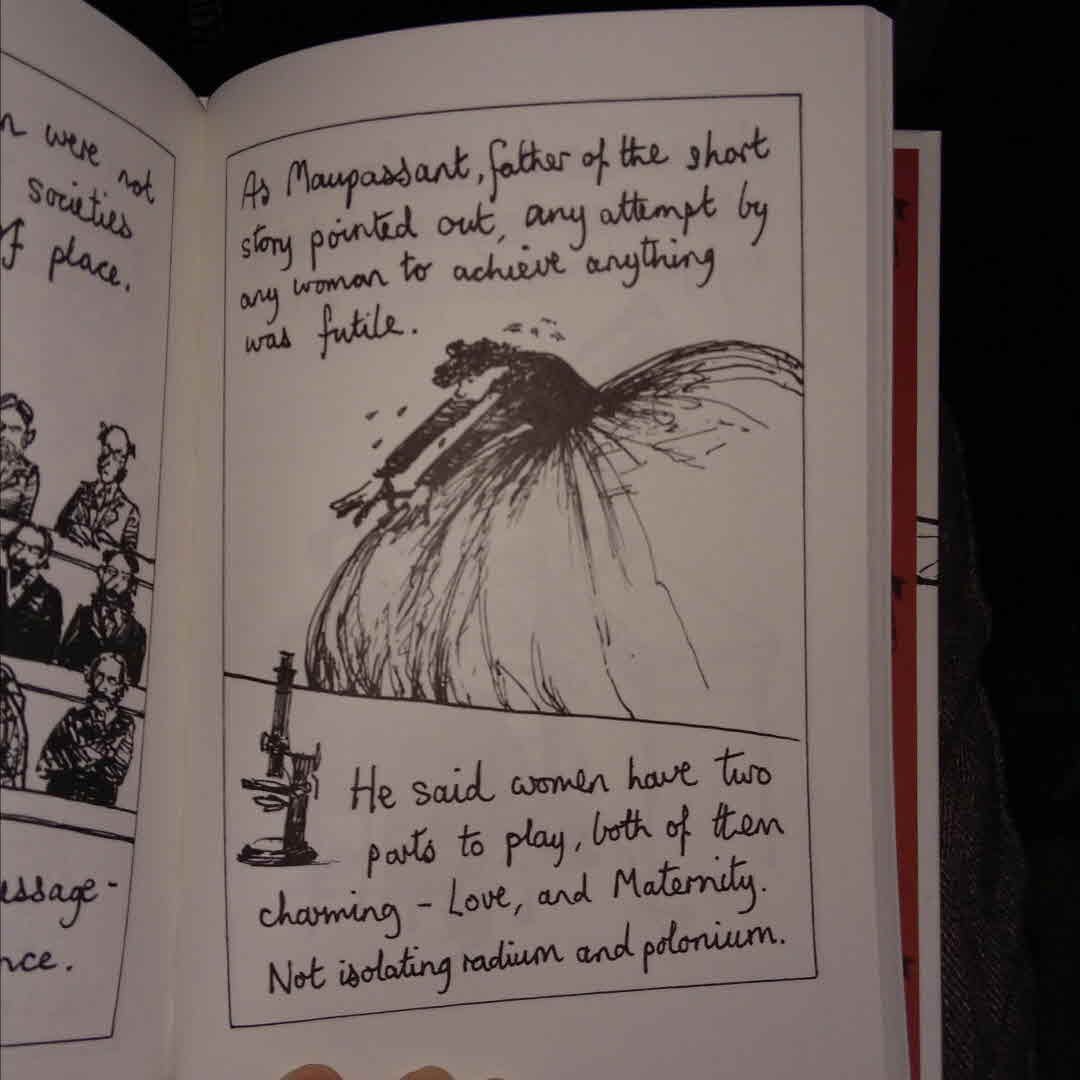 n were not
societies
of place.
ussage -
nce.
As Maupassant, father of the short
story pointed out, any attempt by
any woman to achieve anything
was futile.
He said women have two
parts to play, both of them
charming - Love, and Maternity.
Not isolating radium and polonium.